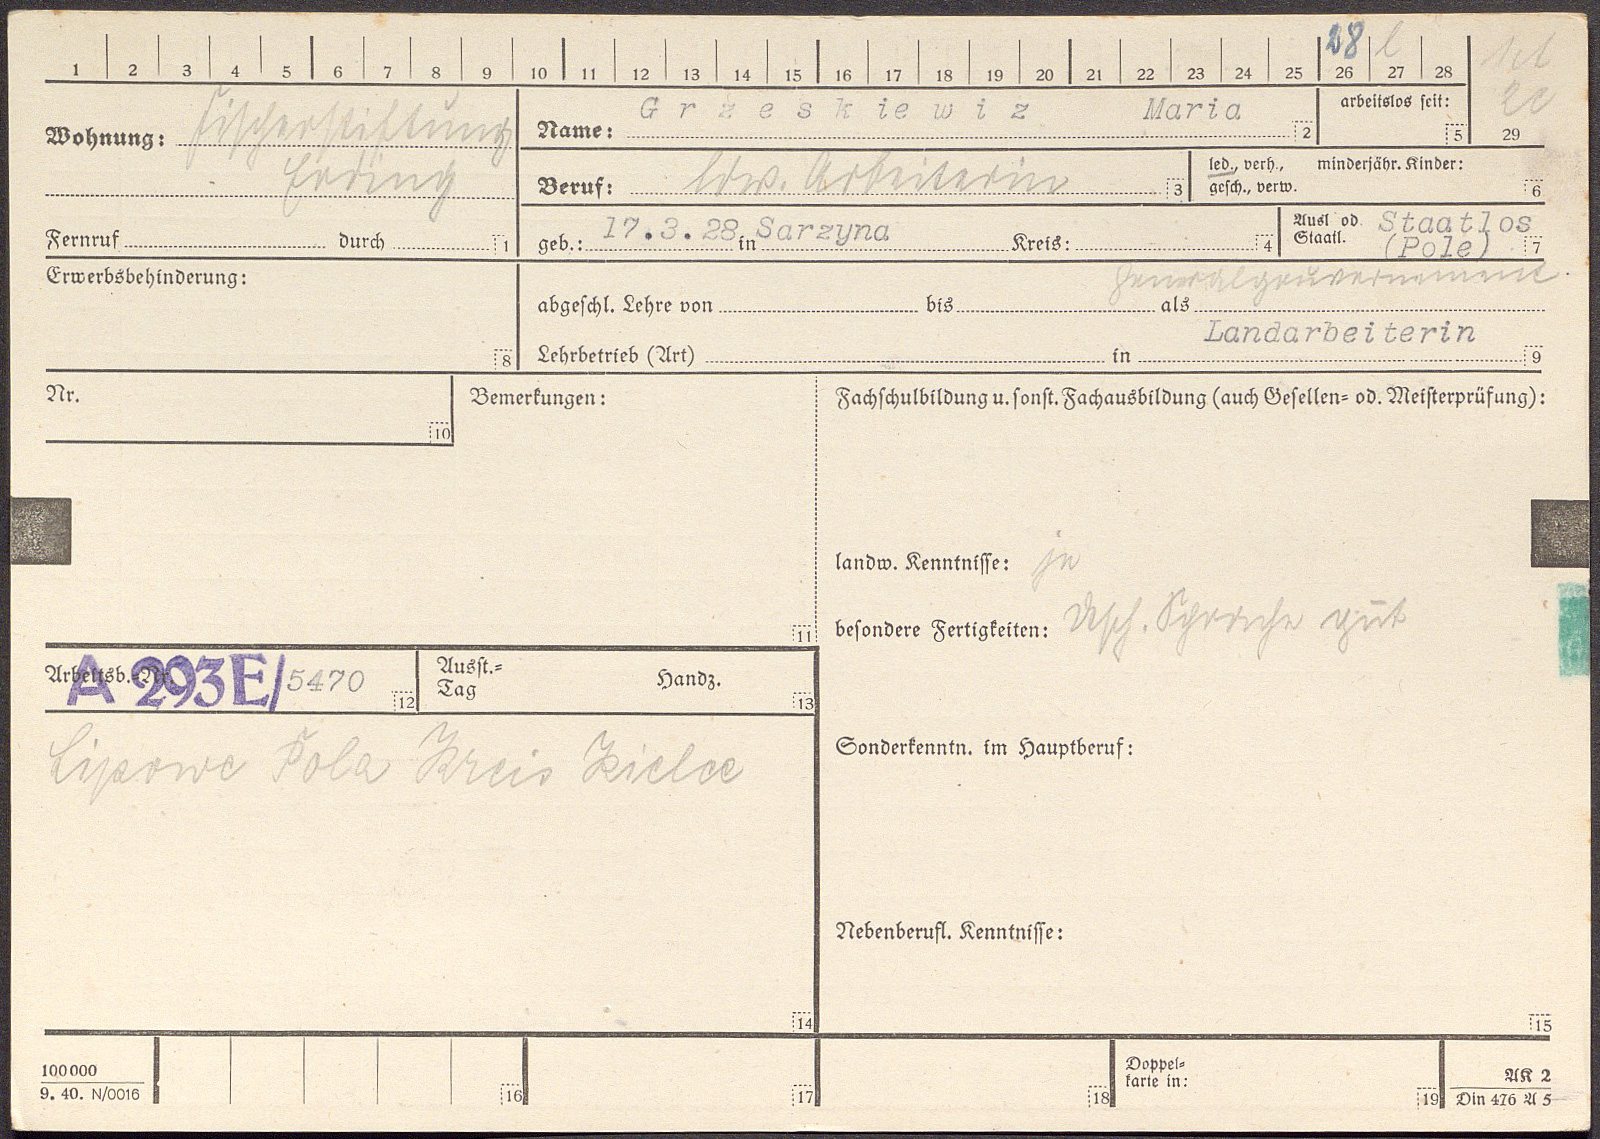 28 l
1 2 3 4 5 6 7 8 9 10 11 12 13 14 15 16 17 18 19 20 21 22 23 24 25 26 27 28
29
Wohnung: Fischerstiftung
Erding
Fernruf durch 1
Name: Grzeskiewiz Maria 2
arbeitslos seit: 5
Beruf: ldw. Arbeiterin 3
led., verh., minderjähr. Kinder:
gesch., verw. 6
geb.: 17.3.28 in Sarzyna Kreis: 4
Ausl od. Staatlos
Staatl. (Pole) 7
Generalgouvernement
Erwerbsbehinderung:
8
abgeschl. Lehre von bis als
Landarbeiterin
Lehrbetrieb (Art) in 9
Nr.
10
Bemerkungen:
11
Fachschulbildung u. sonst. Fachausbildung (auch Gesellen- od. Meisterprüfung):
landw. Kenntnisse: ja
besondere Fertigkeiten: dtsch. Sprache gut
Arbeitsb.-Nr. A 293E/5470 12
Ausst.-
Tag Handz. 13
Lipowe Pola Kreis Kielce
14
Sonderkenntn. im Hauptberuf:
Nebenberufl. Kenntnisse:
15
100000
9. 40. N/0016
16
17
18
Doppel-
karte in:
19
AK 2
Din 476 A 5